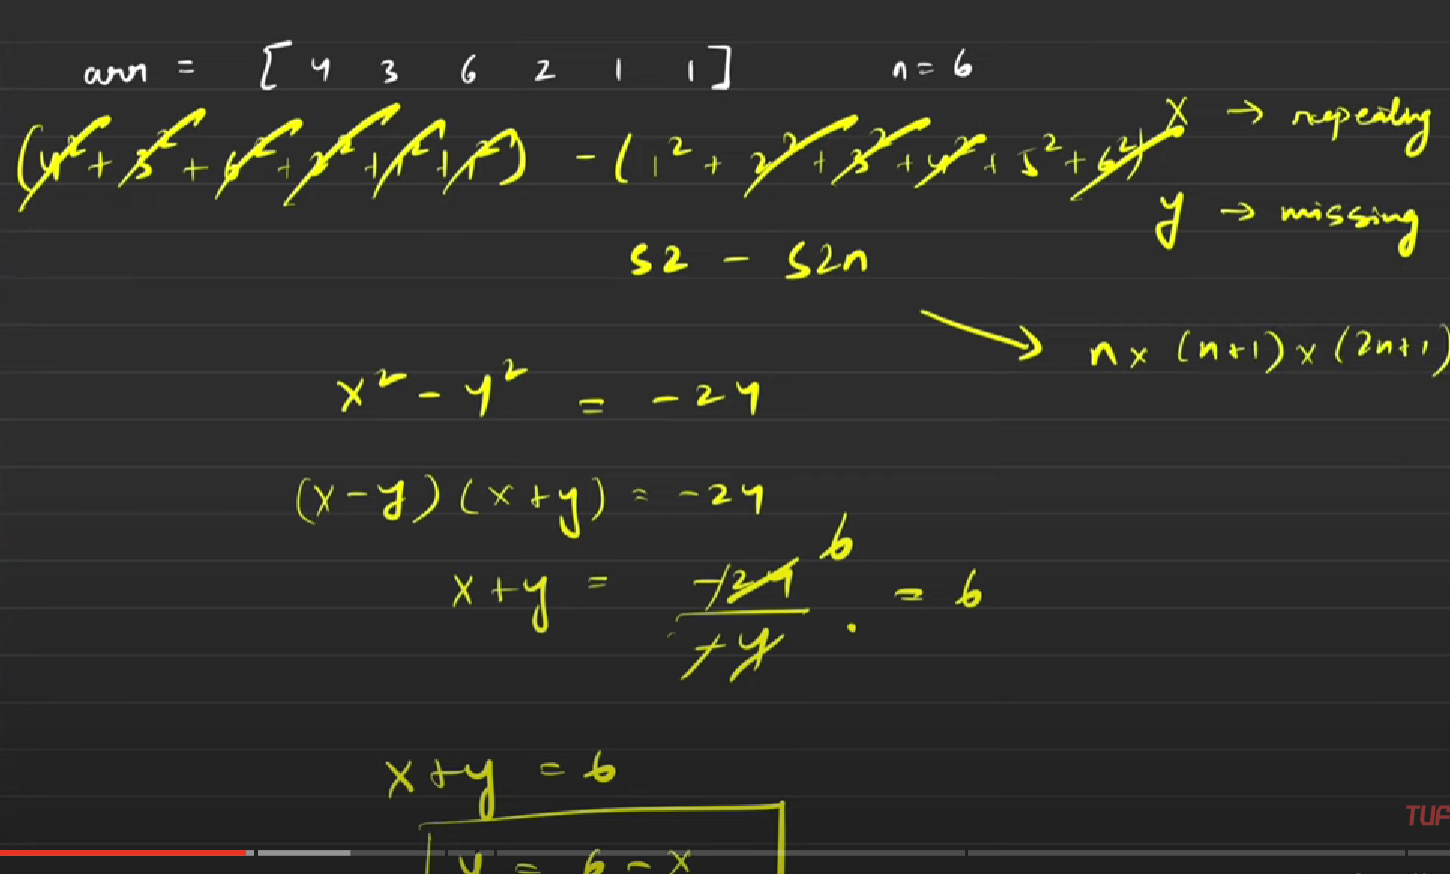 arr = [ 4 3 6 2 1 1 ] n = 6
(4² + 3² + 6² + 2² + 1² + 1²) - (1² + 2² + 3² + 4² + 5² + 6²)
x → repeating
y → missing
S2 - S2n
n x (n+1) x (2n+1
x² - y² = -24
(x-y) (x+y) = -24
x+y = -24 / -4 6 = 6
x+y = 6
y = 6 - x
TUF